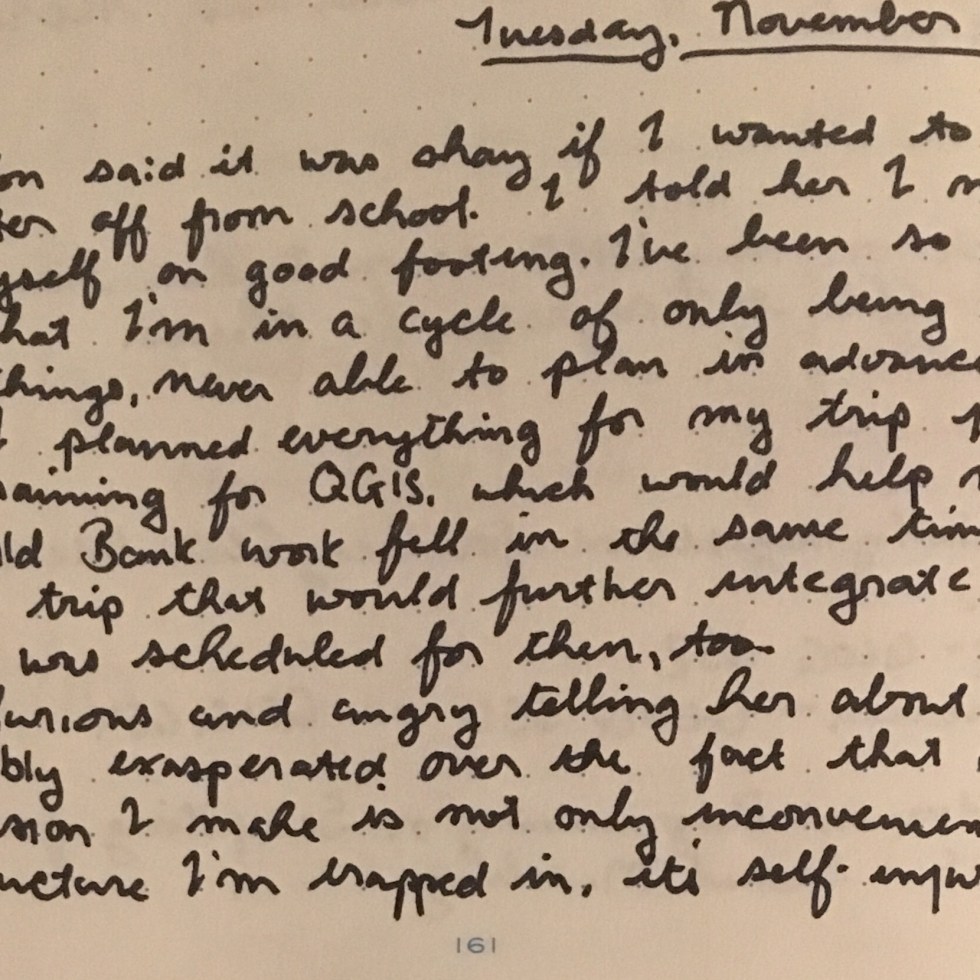 Tuesday, November
on said it was okay if I wanted to
ter off from school. I told her I
yself on good footing. I've been so
hat I'm in a cycle of only being
things, never able to plan in advance
planned everything for my trip
raining for QGIS, which would help
ld Bank work fell in the same tim
trip that would further integrate
was scheduled for then, too.
furious and angry telling her about
bly exasperated over the fact that
sion I make is not only inconvenien
ucture I'm trapped in, it's self-inju
161